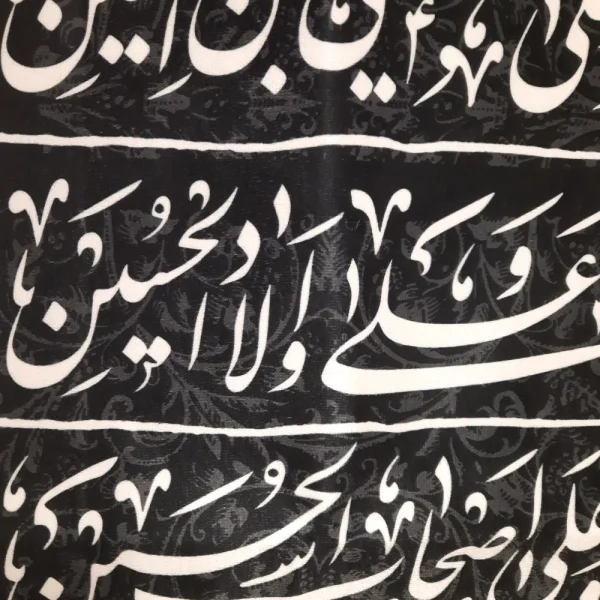 علی بن الحسین
وعلى اولاد الحسین
على اصحاب الحسین